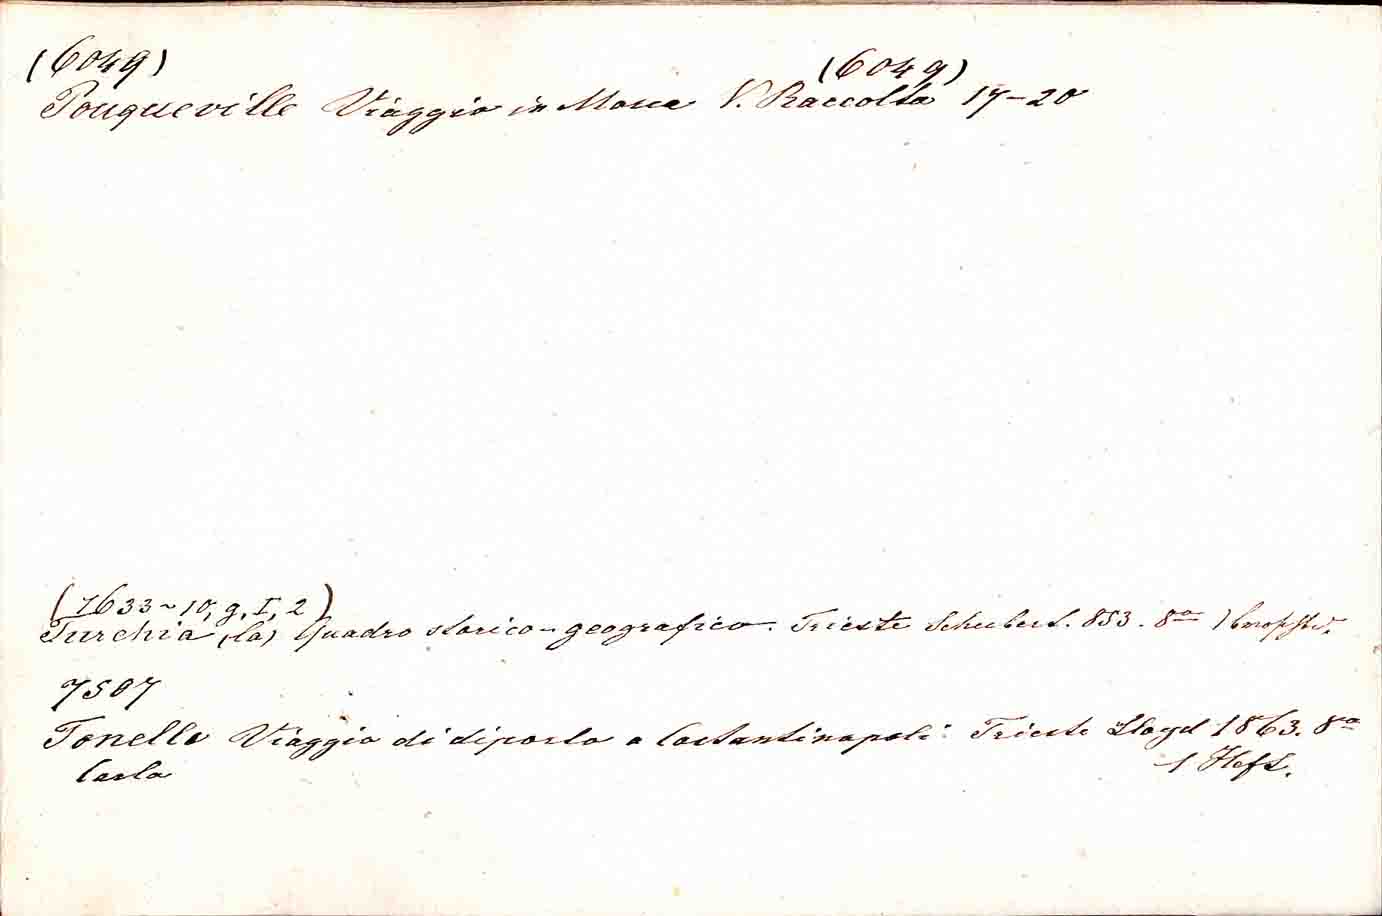 (6049) (6049)
Pouqueville Viaggio in Morea V. Raccolta 17-20
(7633-10, g, I, 2)
Turchia (la) Quadro storico-geografico. Trieste Schubert. 853. 8° 1
7507
Tonello Viaggio di diporto a Costantinopoli: Trieste Lloyd 1863. 8°
Carlo 1 Heft.